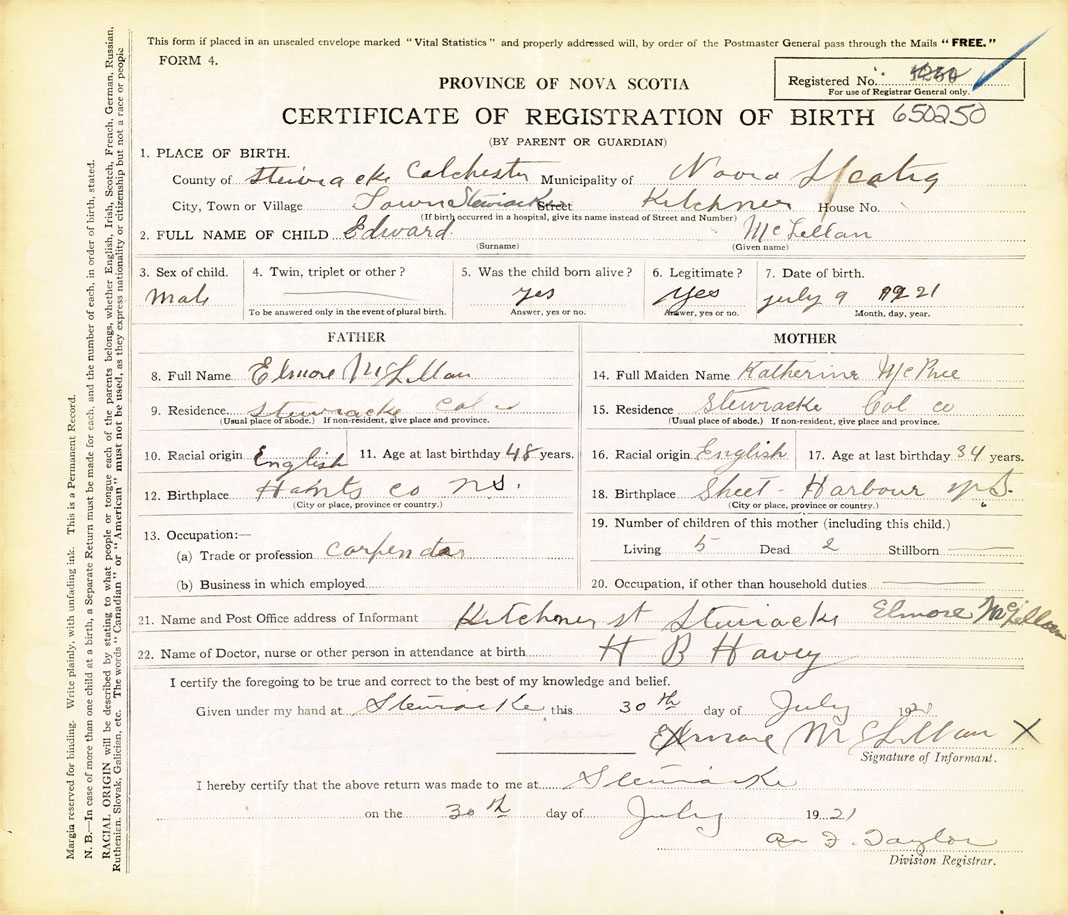 This form if placed in an unsealed envelope marked "Vital Statistics" and properly addressed will, by order of the Postmaster General pass through the Mails "FREE."
FORM 4.
Registered No.
For use of Registrar General only.
PROVINCE OF NOVA SCOTIA
CERTIFICATE OF REGISTRATION OF BIRTH 650250
(BY PARENT OR GUARDIAN)
1. PLACE OF BIRTH.
County of Stewiacke Colchester Municipality of Nova Scotia
City, Town or Village Town Stewiacke Street Kitchner House No.
(If birth occurred in a hospital, give its name instead of Street and Number)
2. FULL NAME OF CHILD Edward McLellan
(Surname) (Given name)
3. Sex of child. 4. Twin, triplet or other? 5. Was the child born alive? 6. Legitimate? 7. Date of birth.
Male yes yes july 9 1921
To be answered only in the event of plural birth. Answer, yes or no. Answer, yes or no. Month, day, year.
FATHER
8. Full Name Elmore McLellan
9. Residence Stewiacke Col co
(Usual place of abode.) If non-resident, give place and province.
10. Racial origin English 11. Age at last birthday 48 years.
12. Birthplace Hants co NS.
(City or place, province or country.)
13. Occupation:—
(a) Trade or profession carpendar
(b) Business in which employed
MOTHER
14. Full Maiden Name Katherine
15. Residence Stewiacke Col co
(Usual place of abode.) If non-resident, give place and province.
16. Racial origin English 17. Age at last birthday 34 years.
18. Birthplace Sheet-Harbour N.S.
(City or place, province or country.)
19. Number of children of this mother (including this child.)
Living 5 Dead 2 Stillborn
20. Occupation, if other than household duties
21. Name and Post Office address of Informant Kitchner st Stewiacke Elmore McLellan
22. Name of Doctor, nurse or other person in attendance at birth H B Havey
I certify the foregoing to be true and correct to the best of my knowledge and belief.
Given under my hand at Stewiacke this 30th day of July 1921
Elmore McLellan X
Signature of Informant.
I hereby certify that the above return was made to me at Stewiacke
on the 30th day of July 1921
F. Taylor
Division Registrar.
Margin reserved for binding. Write plainly, with unfading ink. This is a Permanent Record.
N. B.—In case of more than one child at a birth, a Separate Return must be made for each, and the number of each, in order of birth, stated.
RACIAL ORIGIN will be described by stating to what people or tongue each of the parents belongs, whether English, Irish, Scotch, French, German, Russian,
Ruthenian, Slovak, Galician, etc. The words "Canadian" or "American" must not be used, as they express nationality or citizenship but not a race or people